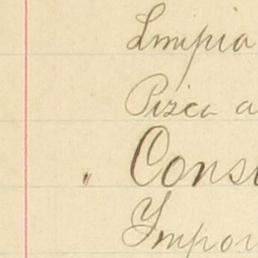 Limpia
Pizca a
" Const
Impor